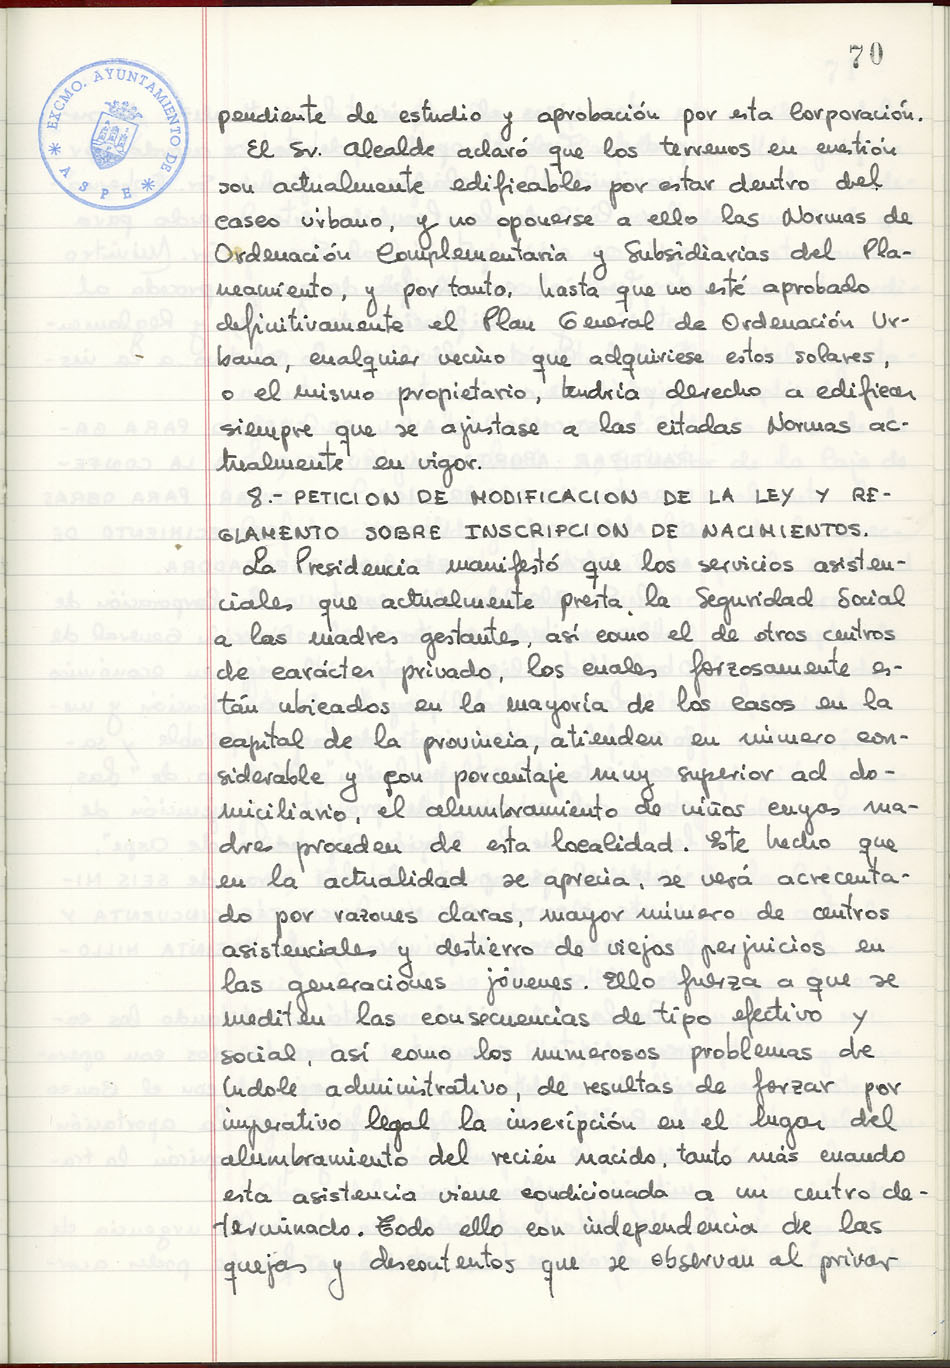 70
EXCMO. AYUNTAMIENTO DE
* ASPE *
pendiente de estudio y aprobación por esta Corporación.
El Sr. Alcalde aclaró que los terrenos en cuestión
son actualmente edificables por estar dentro del
casco urbano, y no oponerse a ello las Normas de
Ordenación Complementaria y Subsidiarias del Pla-
neamiento, y por tanto, hasta que no esté aprobado
definitivamente el Plan General de Ordenación Ur-
bana, cualquier vecino que adquiriese estos solares,
o el mismo propietario, tendría derecho a edificar
siempre que se ajustase a las citadas Normas ac-
tualmente en vigor.
8.- PETICION DE MODIFICACION DE LA LEY Y RE-
GLAMENTO SOBRE INSCRIPCION DE NACIMIENTOS.
La Presidencia manifestó que los servicios asisten-
ciales que actualmente presta, la Seguridad Social
a las madres gestantes, así como el de otros centros
de carácter privado, los cuales forzosamente es-
tán ubicados en la mayoría de los casos en la
capital de la provincia, atienden en número con-
siderable y con porcentaje muy superior ad do-
miciliario, el alumbramiento de niños cuyas ma-
dres proceden de esta localidad. Este hecho que
en la actualidad se aprecia, se verá acrecenta-
do por razones claras, mayor número de centros
asistenciales y destierro de viejos perjuicios en
las generaciones jóvenes. Ello fuerza a que se
mediten las consecuencias de tipo efectivo y
social, así como los numerosos problemas de
índole administrativo, de resultas de forzar por
imperativo legal la inscripción en el lugar del
alumbramiento del recién nacido, tanto más cuando
esta asistencia viene condicionada a un centro de-
terminado. Todo ello con independencia de las
quejas y descontentos que se observan al privar